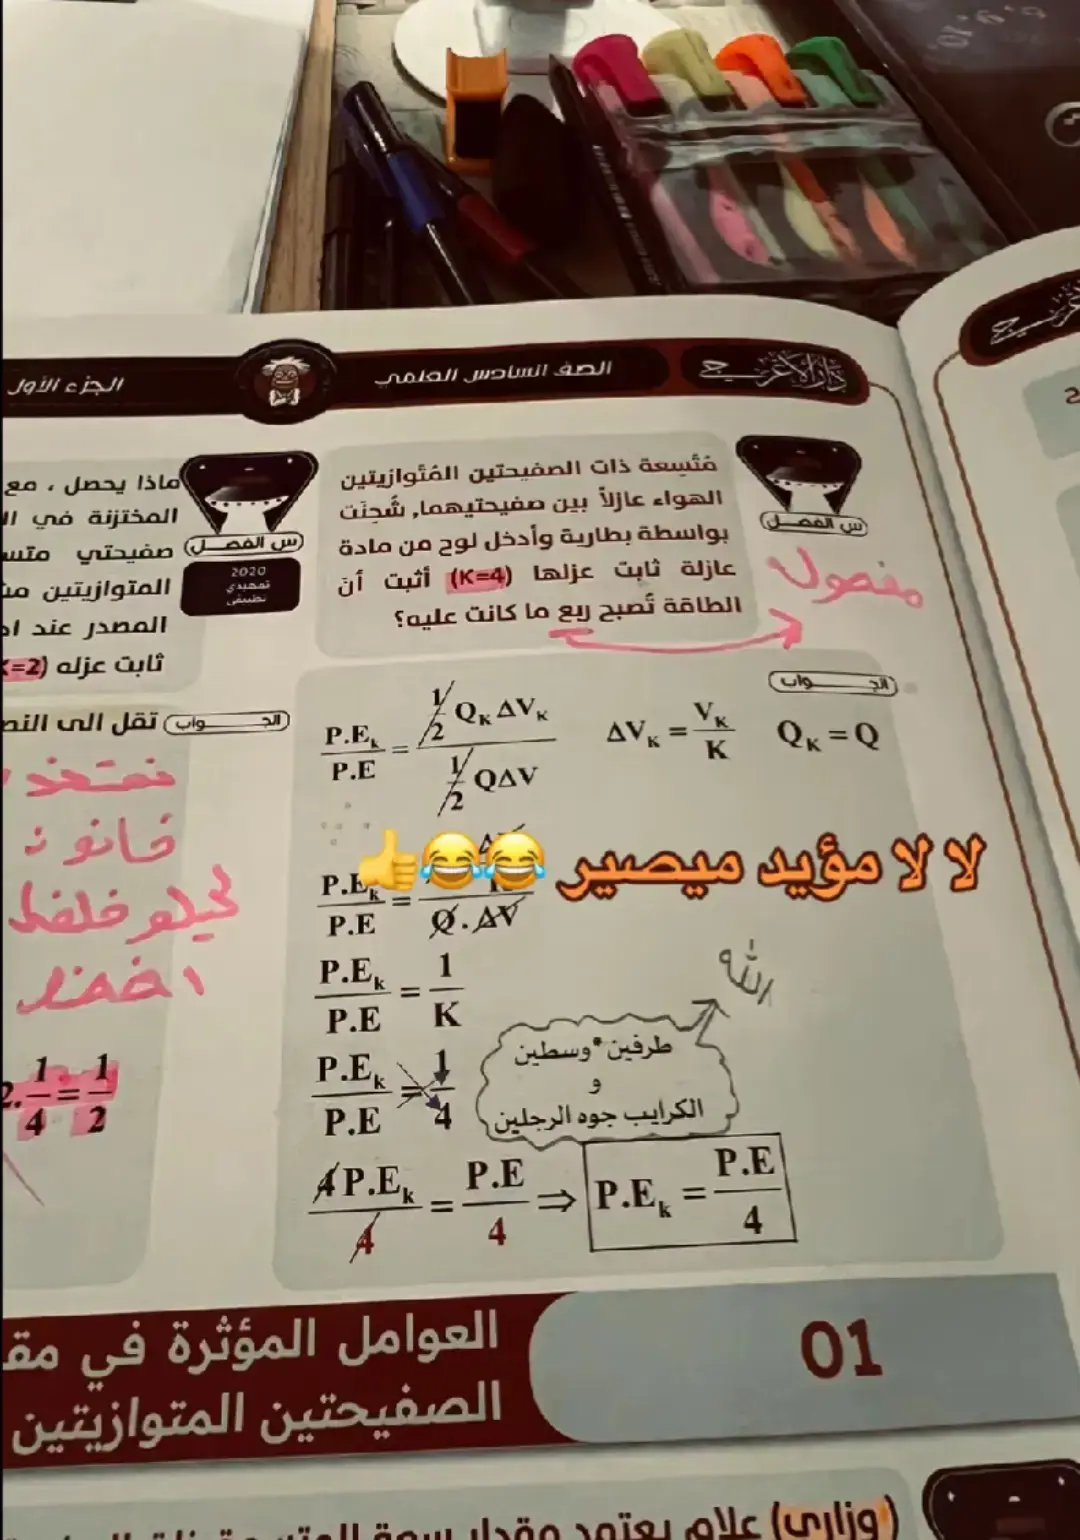 دار الأعرجي
الصف السادس العلمي
الجزء الأول
س الفصل
مُتسعة ذات الصفيحتين المُتوازيتين
الهواء عازلاً بين صفيحتيهما, شُحِنَت
بواسطة بطارية وأدخل لوح من مادة
عازلة ثابت عزلها (K=4) أثبت أنَ
الطاقة تُصبح ربع ما كانت عليه؟
مفصول
الجواب
Q_K = Q
ΔV_K = V_K / K
P.E_k / P.E = 1/2 Q_K ΔV_K / 1/2 QΔV
لا لا مؤيد ميصير 😂😂👍
P.E_k / P.E =
Q . ΔV
P.E_k / P.E = 1 / K
الله
P.E_k / P.E = 1 / 4
طرفين*وسطين
و
الكرايب جوه الرجلين
4P.E_k / 4 = P.E / 4 ⇒ P.E_k = P.E / 4
س الفصل
2020
تمهيدي
تطبيقي
ماذا يحصل ، مع
المختزنة في
صفيحتي
المتوازيتين
المصدر عند
ثابت عزله (K=2)
الجواب
تقل الى
قانون
2. 1/4 = 1/2
01
العوامل المؤثرة في
الصفيحتين المتوازيتين
(وزاري) علام يعتمد مقدار سعة